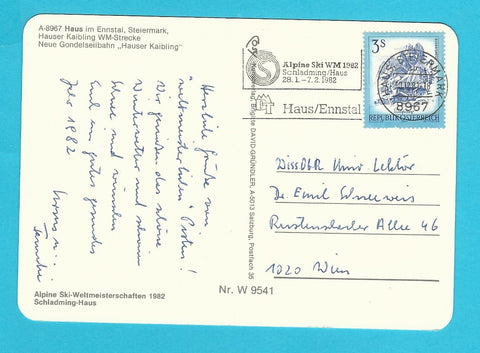 A-8967 Haus im Ennstal, Steiermark,
Hauser Kaibling WM-Strecke
Neue Gondelseilbahn „Hauser Kaibling"
Herzliche Grüße von
"weltmeisterlichen" Pisten!
Wir genießen das schöne
Winterwetter und
Schnee und wünschen
Euch ein gutes gesundes
Jahr 1982
Familie
Alpine Ski-Weltmeisterschaften 1982
Schladming-Haus
Alpine Ski WM 1982
Schladming/Haus
28.1.-7.2.1982
Haus/Ennstal
3S
REPUBLIK ÖSTERREICH
8967
Brigitte DAVID-GRÜNDLER, A-5013 Salzburg, Postfach 35
Nr. W 9541
Univ Lektor
Dr. Emil Schneeweis
Rustenschacher Allee 46
1020 Wien